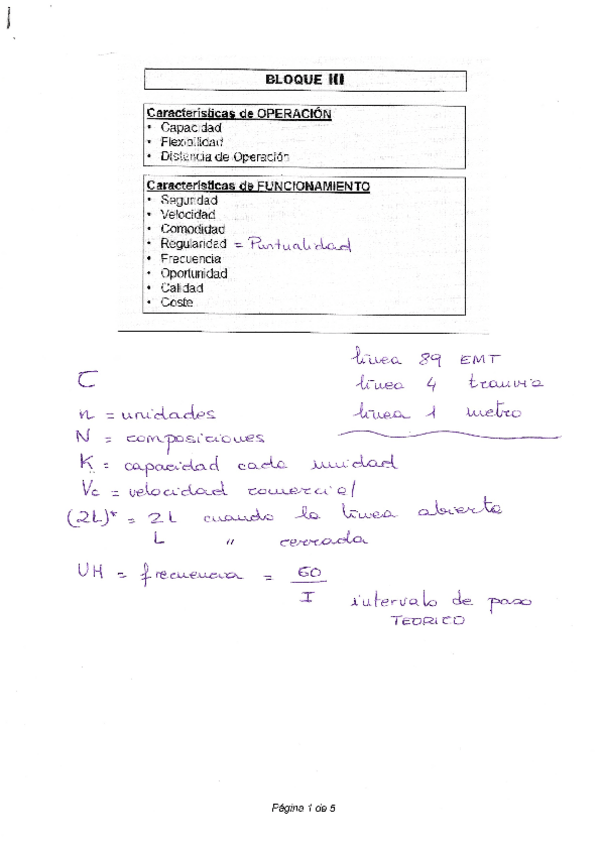 BLOQUE III
Características de OPERACIÓN
• Capacidad
• Flexibilidad
• Distancia de Operación
Características de FUNCIONAMIENTO
• Seguridad
• Velocidad
• Comodidad
• Regularidad = Puntualidad
• Frecuencia
• Oportunidad
• Calidad
• Coste
línea 89 EMT
línea 4 tranvía
línea 1 metro
C
n = unidades
N = composiciones
K = capacidad cada unidad
Vc = velocidad comercial
(2L)* = 2L cuando la línea abierta
L " cerrada
UH = frecuencia = 60 / I
intervalo de paso
TEORICO
Página 1 de 5